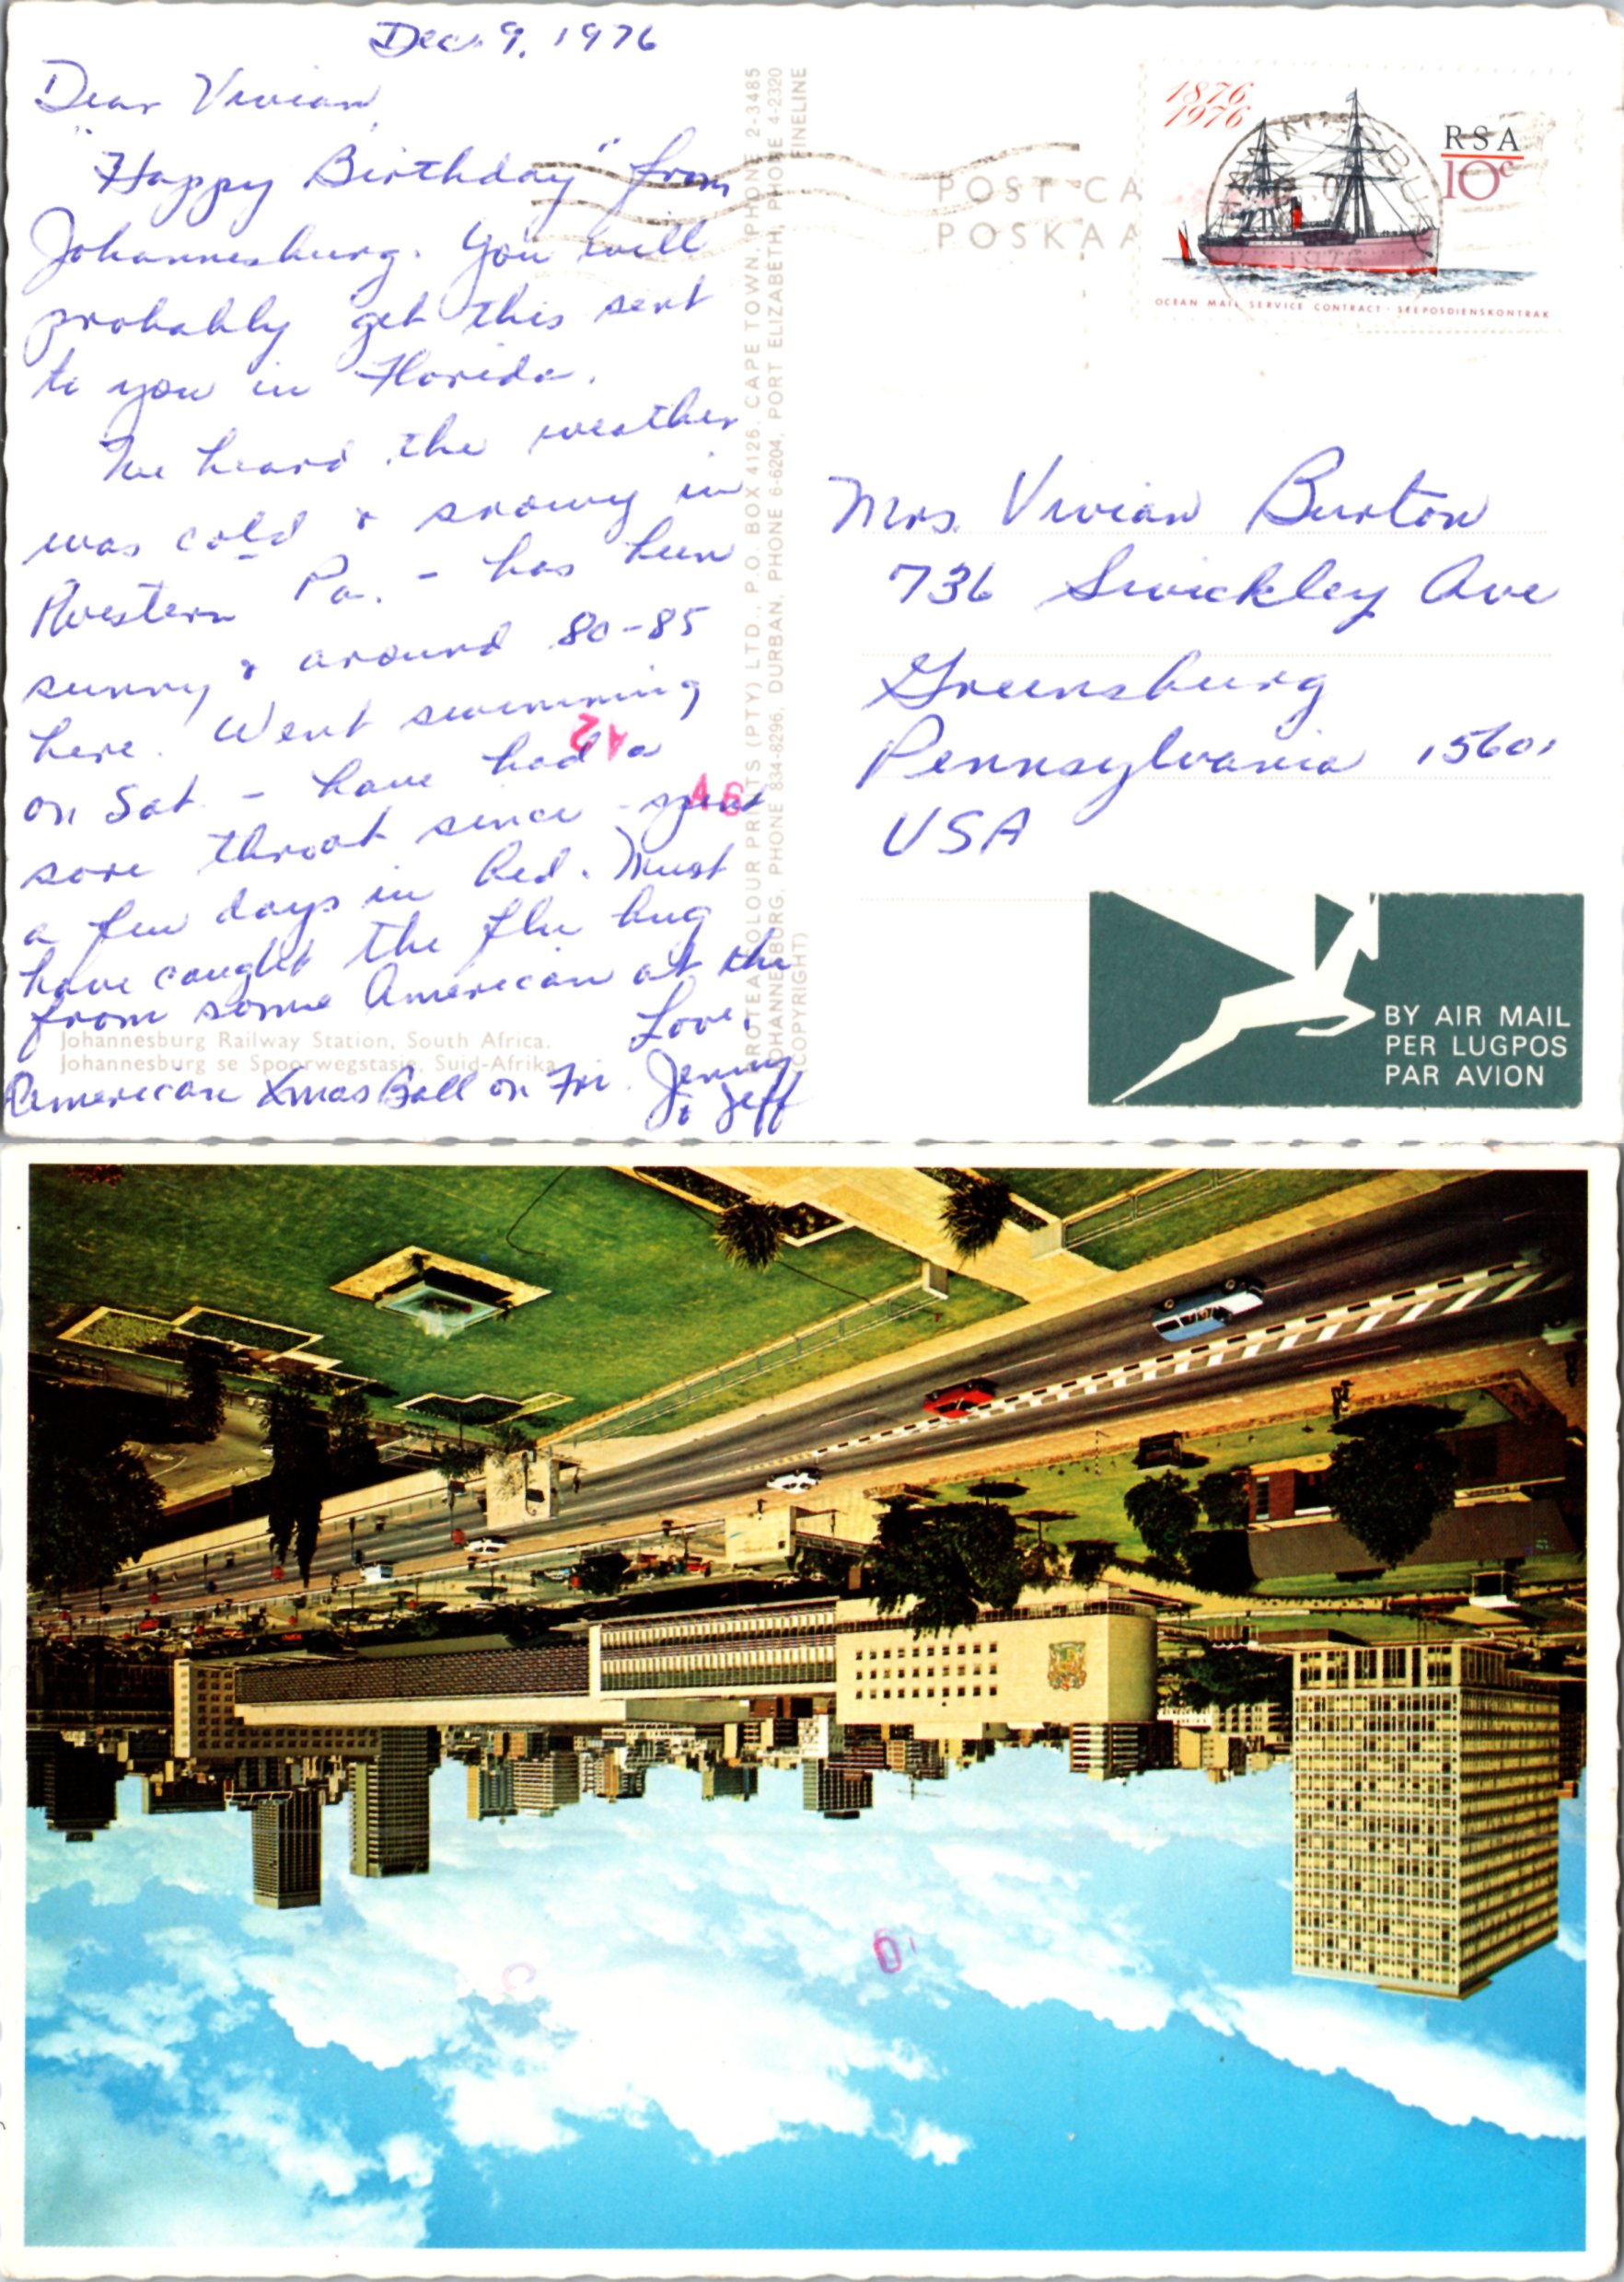 Dec. 9, 1976
Dear Vivian,
"Happy Birthday" from
Johannesburg. You will
probably get this sent
to you in Florida.
We heard the weather
was cold & snowy in
Western Pa. - has been
sunny & around 80-85
here. Went swimming
on Sat. - have had a
sore throat since - spent
a few days in bed. Must
have caught the flu bug
from some American at the
American Xmas Ball on Fri.
Love,
Jenny
& Jeff
Johannesburg Railway Station, South Africa.
Johannesburg se Spoorwegstasie, Suid-Afrika
A2
A6
PROTEA COLOUR PRINTS (PTY) LTD., P.O. BOX 4126, CAPE TOWN, PHONE 2-3485
JOHANNESBURG, PHONE 834-8296, DURBAN, PHONE 6-6204, PORT ELIZABETH, PHONE 4-2320
(COPYRIGHT) FINELINE
POST CA
POSKAA
1876
1976
RSA
10c
OCEAN MAIL SERVICE CONTRACT · SEEPOSDIENSKONTRAK
Mrs. Vivian Burton
736 Swickley Ave
Greensburg
Pennsylvania 15601
USA
BY AIR MAIL
PER LUGPOS
PAR AVION